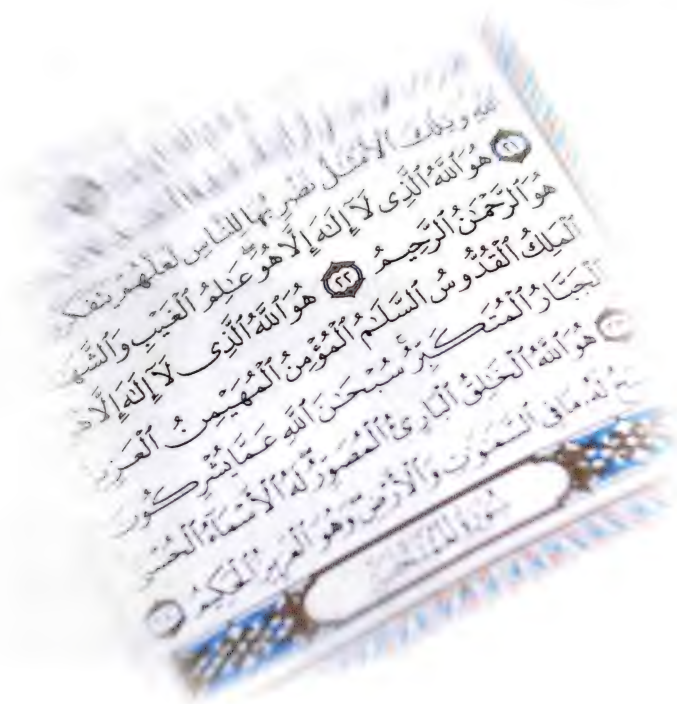 ٱللَّهِ وَتِلْكَ ٱلْأَمْثَٰلُ نَضْرِبُهَا لِلنَّاسِ لَعَلَّهُمْ يَتَفَكَّرُ
٢١ هُوَ ٱللَّهُ ٱلَّذِى لَآ إِلَٰهَ إِلَّا هُوَ عَٰلِمُ ٱلْغَيْبِ وَٱلشَّهَ
هُوَ ٱلرَّحْمَٰنُ ٱلرَّحِيمُ ٢٢ هُوَ ٱللَّهُ ٱلَّذِى لَآ إِلَٰهَ إِلَّا هُ
ٱلْمَلِكُ ٱلْقُدُّوسُ ٱلسَّلَٰمُ ٱلْمُؤْمِنُ ٱلْمُهَيْمِنُ ٱلْعَزِي
ٱلْجَبَّارُ ٱلْمُتَكَبِّرُ سُبْحَٰنَ ٱللَّهِ عَمَّا يُشْرِكُونَ
هُوَ ٱللَّهُ ٱلْخَٰلِقُ ٱلْبَارِئُ ٱلْمُصَوِّرُ لَهُ ٱلْأَسْمَآءُ ٱلْحُسْنَ
لَهُۥ مَا فِى ٱلسَّمَٰوَٰتِ وَٱلْأَرْضِ وَهُوَ ٱلْعَزِيزُ ٱلْحَكِيمُ
سُورَةُ ٱلْمُمْتَحَنَةِ